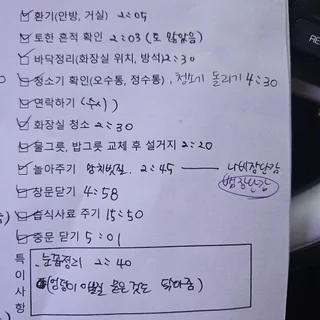 환기(안방, 거실) 2:05
토한 흔적 확인 2:03 (토 많았음)
바닥정리(화장실 위치, 방석) 2:30
청소기 확인(오수통, 정수통), 청소기 돌리기 4:30
연락하기 (수시)
화장실 청소 2:30
물그릇, 밥그릇 교체 후 설거지 2:20
놀아주기 2:45 — 나비장난감
뱀장난감
창문닫기 4:58
습식사료 주기 15:50
중문 닫기 5:01
특이사항
눈꼽정리 2:40
(엉덩이 이빨 묻은것도 닦아줌)